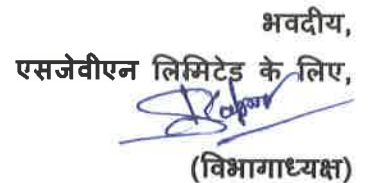 भवदीय,
एसजेवीएन लिमिटेड के लिए,
(विभागाध्यक्ष)